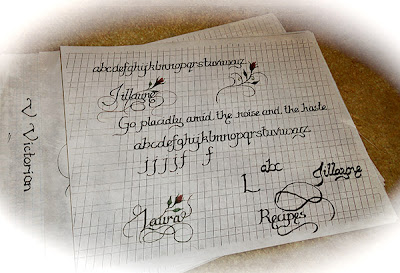 abcdefghijklmnopqrstuvwxyz
Jillayne
Go placidly amid the noise and the haste
abcdefghijklmnopqrstuvwxyz
f f f f f f
L abc Jillayne
Laura Recipes
V Victorian